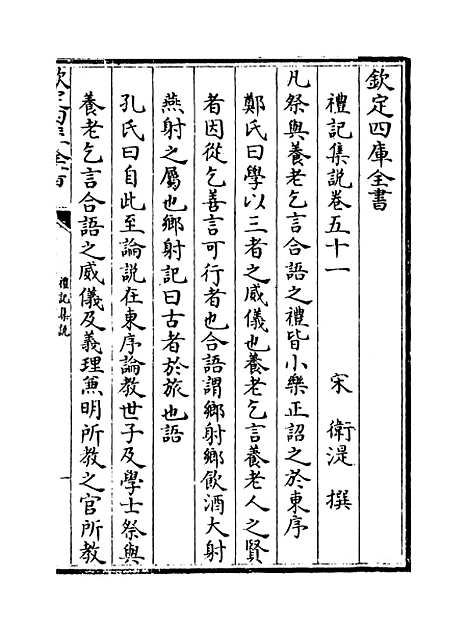 欽定四庫全書
禮記集說卷五十一
宋 衛湜 撰
凡祭與養老乞言合語之禮皆小樂正詔之於東序
鄭氏曰學以三者之威儀也養老乞言養老人之賢
者因從乞善言可行者也合語謂鄉射鄉飲酒大射
燕射之屬也鄉射記曰古者於旅也語
孔氏曰自此至論說在東序論教世子及學士祭與
養老乞言合語之威儀及義理兼明所教之官所教
欽定四庫全書
禮記集說
一